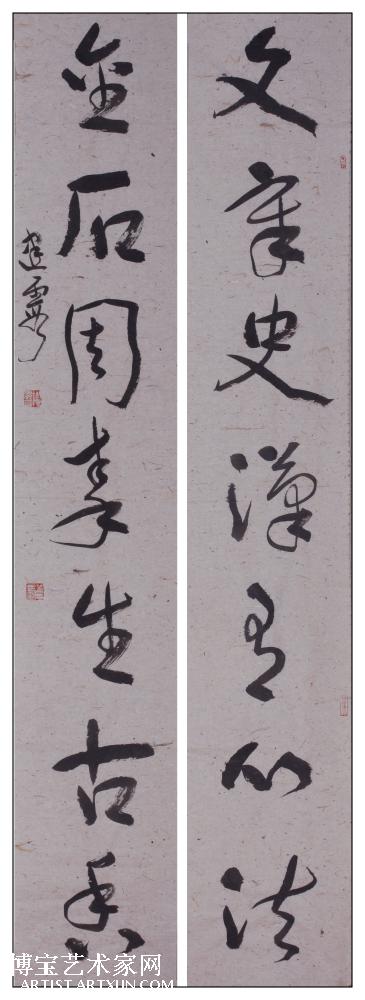 文章史漢有心法
金石周秦生古香
建霞
博宝艺术家网
ARTIST.ARTXUN.COM